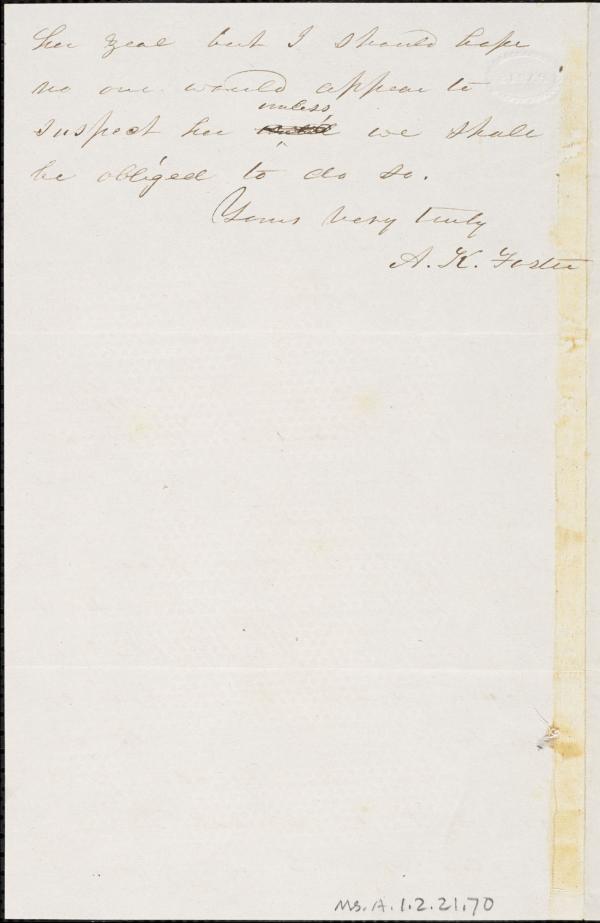 her zeal but I should hope
no one would appear to
unless
suspect her we shall
be obliged to do so.
Yours very truly
A. K. Foster
Ms. A. 1. 2. 21. 70